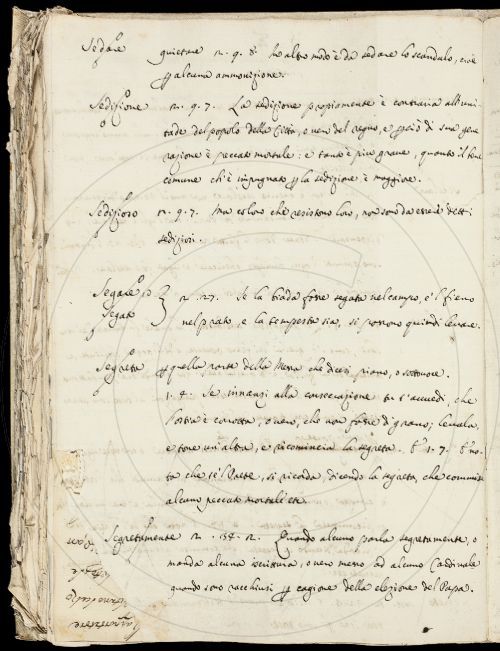 Sedare quietare 2. 9. 8. ho altro modo è da sedare lo scandalo, cioè
p alcuna ammonizione.
Sedizione 2. 9. 7. La sedizione propriamente è contraria all'uni-
tade del popolo della Città, o vero del regno, e però di sua gene-
razione è peccato mortale: e tanto è più grave, quanto il bene
comune ch'è impugnato p la sedizione è maggiore.
Sedizioso 2. 9. 7. Ma coloro che resistono loro, non sono da essere detti
sediziosi.
Segare
Segato 2. 27. Se la biada fosse segata nel campo, e 'l fieno
nel prato, e la tempesta sia, si possono quindi levare.
Segreta p quella parte della Messa che dicesi piano, o sottovoce.
1. 4. Se innanzi alla consecrazione tu t'accvedi, che
l'ostia è corrotta, o vero, che non fosse di grano; levala,
e tone un'altra, e ricomincia la segreta. 1. 7.
ta che se'l Prete, si ricorda, dicendo la segreta, che commise
alcuno peccato mortale etc.
Segretamente 2. 134. 2. Quando alcuno parla segretamente, o
manda alcuna scrittura, o vero messo ad alcuno Cardinale
quando sono racchiusi p cagione della elezione del Papa.